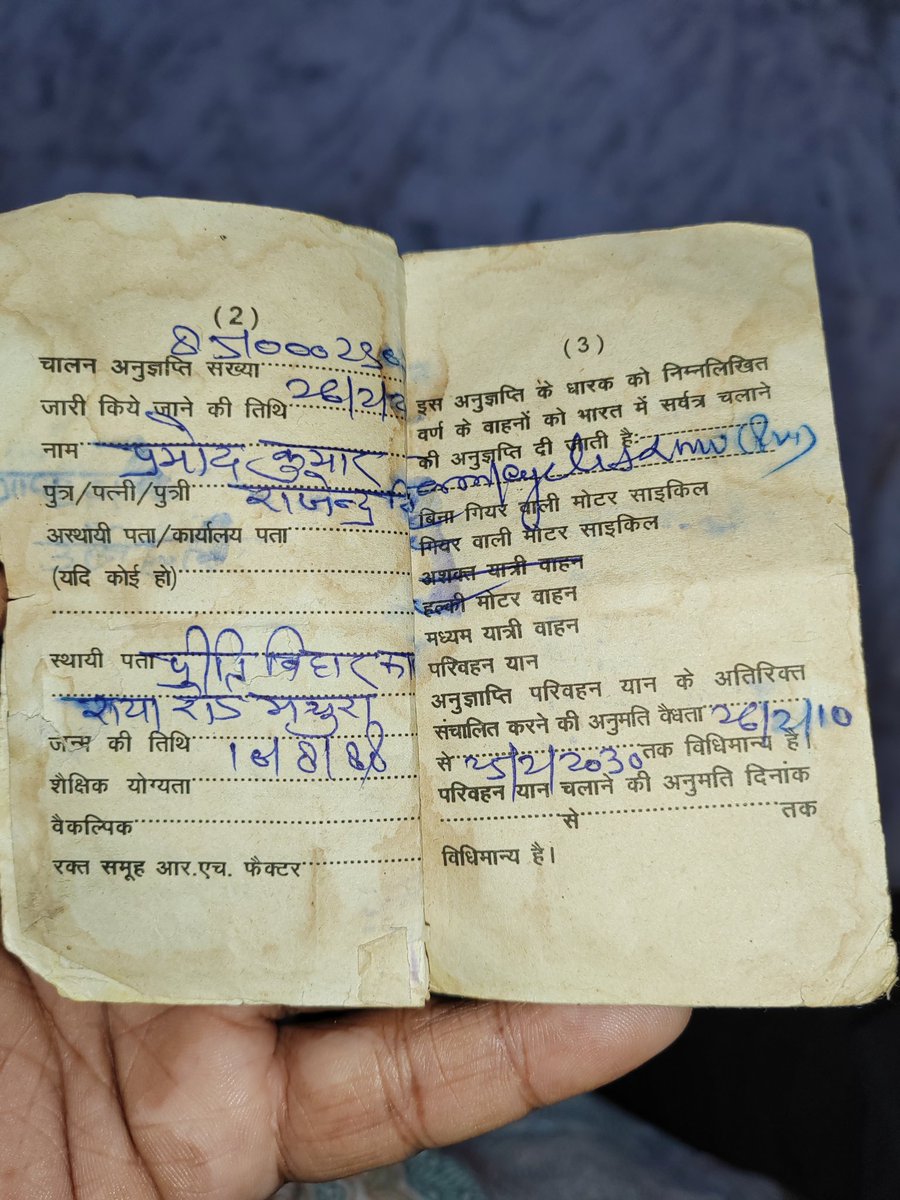 (2)
चालन अनुज्ञप्ति संख्या
जारी किये जाने की तिथि 26/2/
नाम प्रमोद कुमार
पुत्र/पत्नी/पुत्री राजेन्द्र
अस्थायी पता/कार्यालय पता
(यदि कोई हो)
स्थायी पता प्रीति विहार
राया रोड मथुरा
जन्म की तिथि
शैक्षिक योग्यता
वैकल्पिक
रक्त समूह आर.एच. फैक्टर
(3)
इस अनुज्ञप्ति के धारक को निम्नलिखित
वर्ण के वाहनों को भारत में सर्वत्र चलाने
की अनुज्ञप्ति दी जाती है:-
बिना गियर वाली मोटर साइकिल
गियर वाली मोटर साइकिल
अशक्त यात्री वाहन
हल्की मोटर वाहन
मध्यम यात्री वाहन
परिवहन यान
अनुज्ञाप्ति परिवहन यान के अतिरिक्त
संचालित करने की अनुमति वैधता 26/2/10
से 25/2/2030 तक विधिमान्य है।
परिवहन यान चलाने की अनुमति दिनांक
से तक
विधिमान्य है।